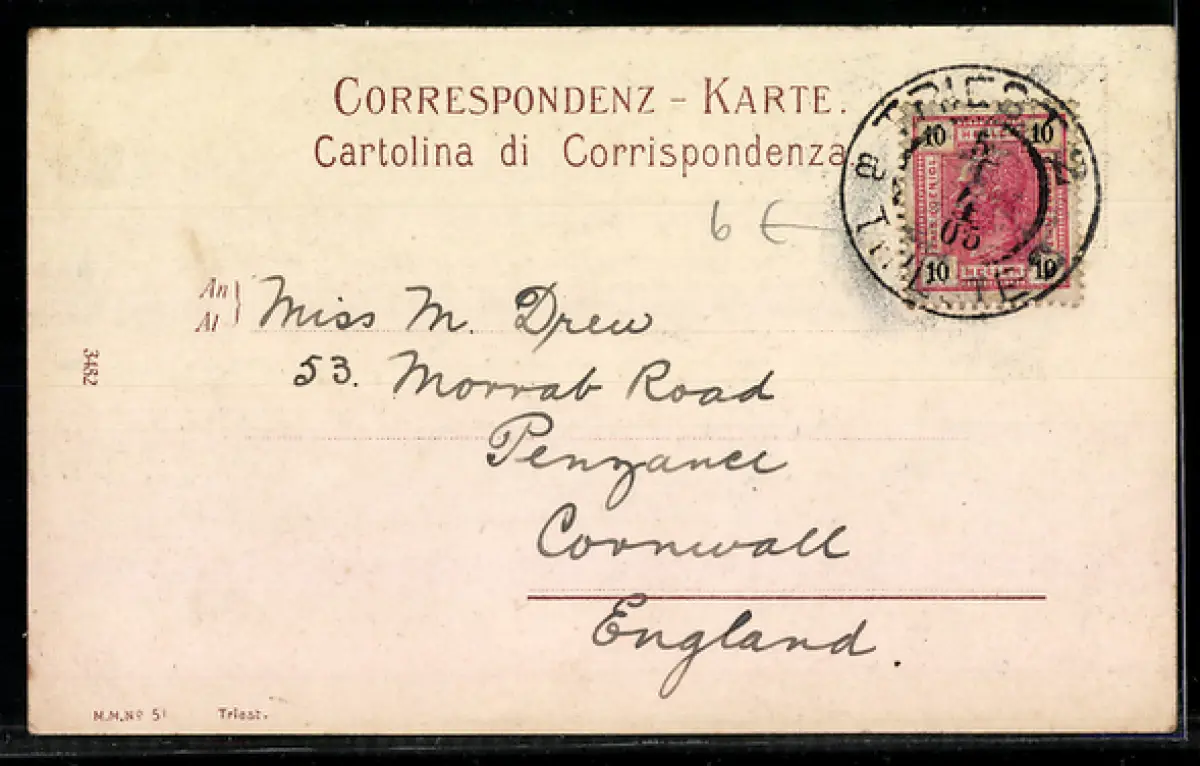 CORRESPONDENZ - KARTE.
Cartolina di Corrispondenza.
TRIEST
TRIESTE
10 10
HELLER
10 HELLER 10
05
6 €
An
Al
Miss M. Drew
53. Morrab Road
Penzance
Cornwall
England.
3482
M.M.No 51 Triest.